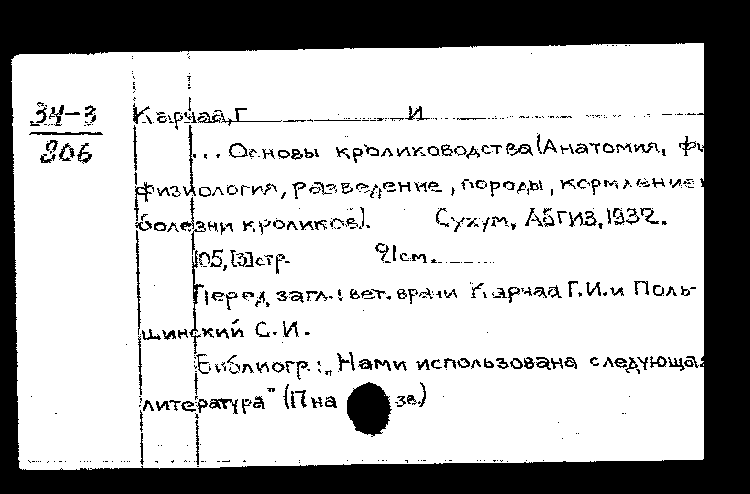 34-3
206
Карчаа, Г И
... Основы кролиководства (Анатомия, фи
физиология, разведение, породы, кормление и
болезни кроликов). Сухум, АБГИЗ, 1932.
105, [3] стр. 21 см.
Перед загл.: вет. врачи Карчаа Г.И. и Поль-
шинский С.И.
Библиогр.: „Нами использована следующая
литература" (17 на зв.)